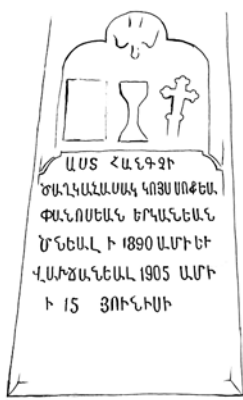 ԱՍՏ ՀԱՆԳՉԻ
ԾԱՂԿԱՀԱՍԱԿ ԿՈՅՍ ՍՈՓԵԱ
ՓԱՆՈՍԵԱՆ ԵՐԿԱՆԵԱՆ
ԾՆԵԱԼ Ի 1890 ԱՄԻ ԵՒ
ՎԱԽՃԱՆԵԱԼ 1905 ԱՄԻ
Ի 15 ՅՈՒՆԻՍԻ